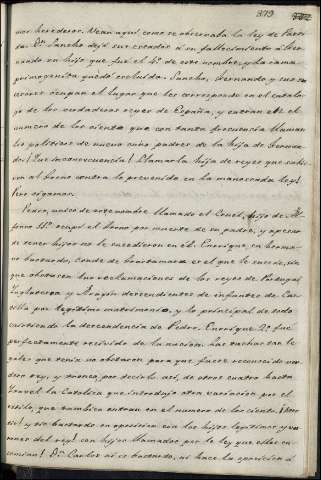 373
mos herederos. Vean aquí como se observaba la ley de Parti-
da. Dn. Sancho dejó sus estados á su fallecimiento á Fer-
nando su hijo que fué el 4º de este nombre, y la rama
primogenita quedó escluida. Sancho, Fernando y sus su-
cesores ocupan el lugar que les corresponde en el catalo-
go de los verdaderos reyes de España, y entran en el
numero de los ciento que con tanta frecuencia llaman
los politicos de nuevo cuño padres de la hija de Fernan-
do! Que inconsecuencia! Llamarla hija de reyes que subie-
ron al trono contra lo prevenido en la manoseada ley!
Pero sigamos.
Pedro, unico de este nombre llamado el Cruel, hijo de Al-
fonso 11º ocupó el trono por muerte de su padre, y apesar
de tener hijos no le sucedieron en él. Enrrique, su herma-
no bastardo, Conde de Trastamara es el que le sucede, sin
que obstasen las reclamaciones de los reyes de Portugal
Inglaterra y Aragón descendientes de infantes de Cas-
tilla por legitimo matrimonio, y lo principal de todo
existiendo la descendencia de Pedro. Enrrique 2º fué
perfectamente recivido de la nacion. Las tachas tan le-
gales que tenia no obstaron para que fuese reconocido verda-
dero rey, y tronco, por decirlo así, de otros cuatro hasta
Isavel la Catolica que introdujo otra variacion por el
estilo que tambien entran en el numero de los ciento.
si, y un bastardo en oposicion con los hijos legitimos y va-
rones del rey! con hijos llamados por la ley que ellos en-
comian! Dn. Carlos ni es bastardo, ni hace la oposicion á